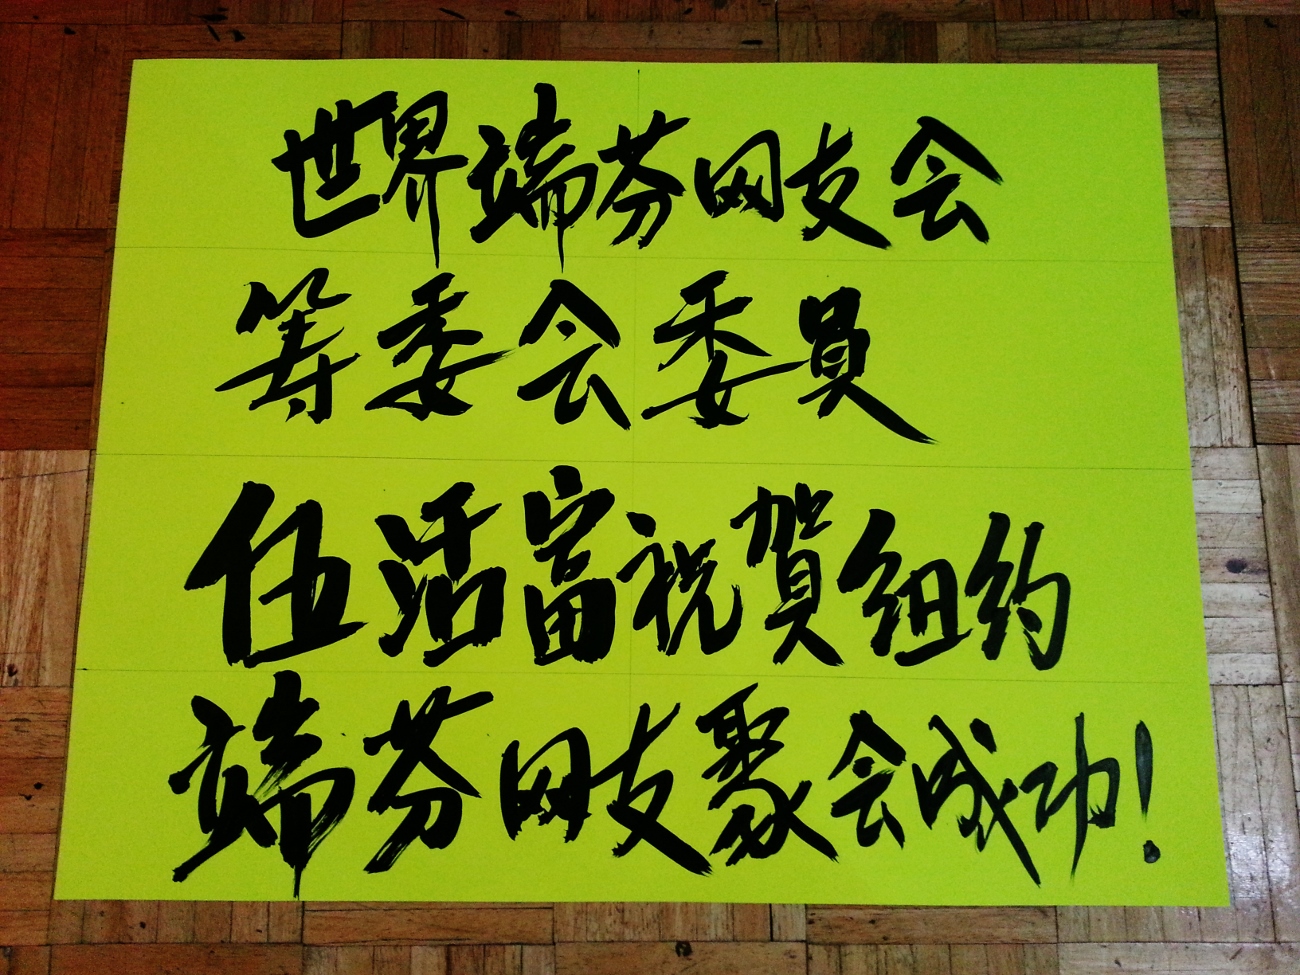 世界端芬网友会
筹委会委员
伍活富祝賀纽约
端芬网友聚会成功!